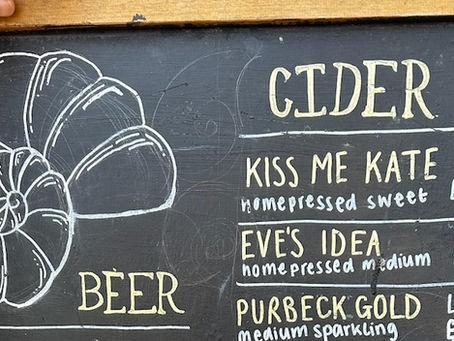 CIDER
KISS ME KATE
homepressed sweet
EVE'S IDEA
homepressed medium
PURBECK GOLD
medium sparkling
BEER